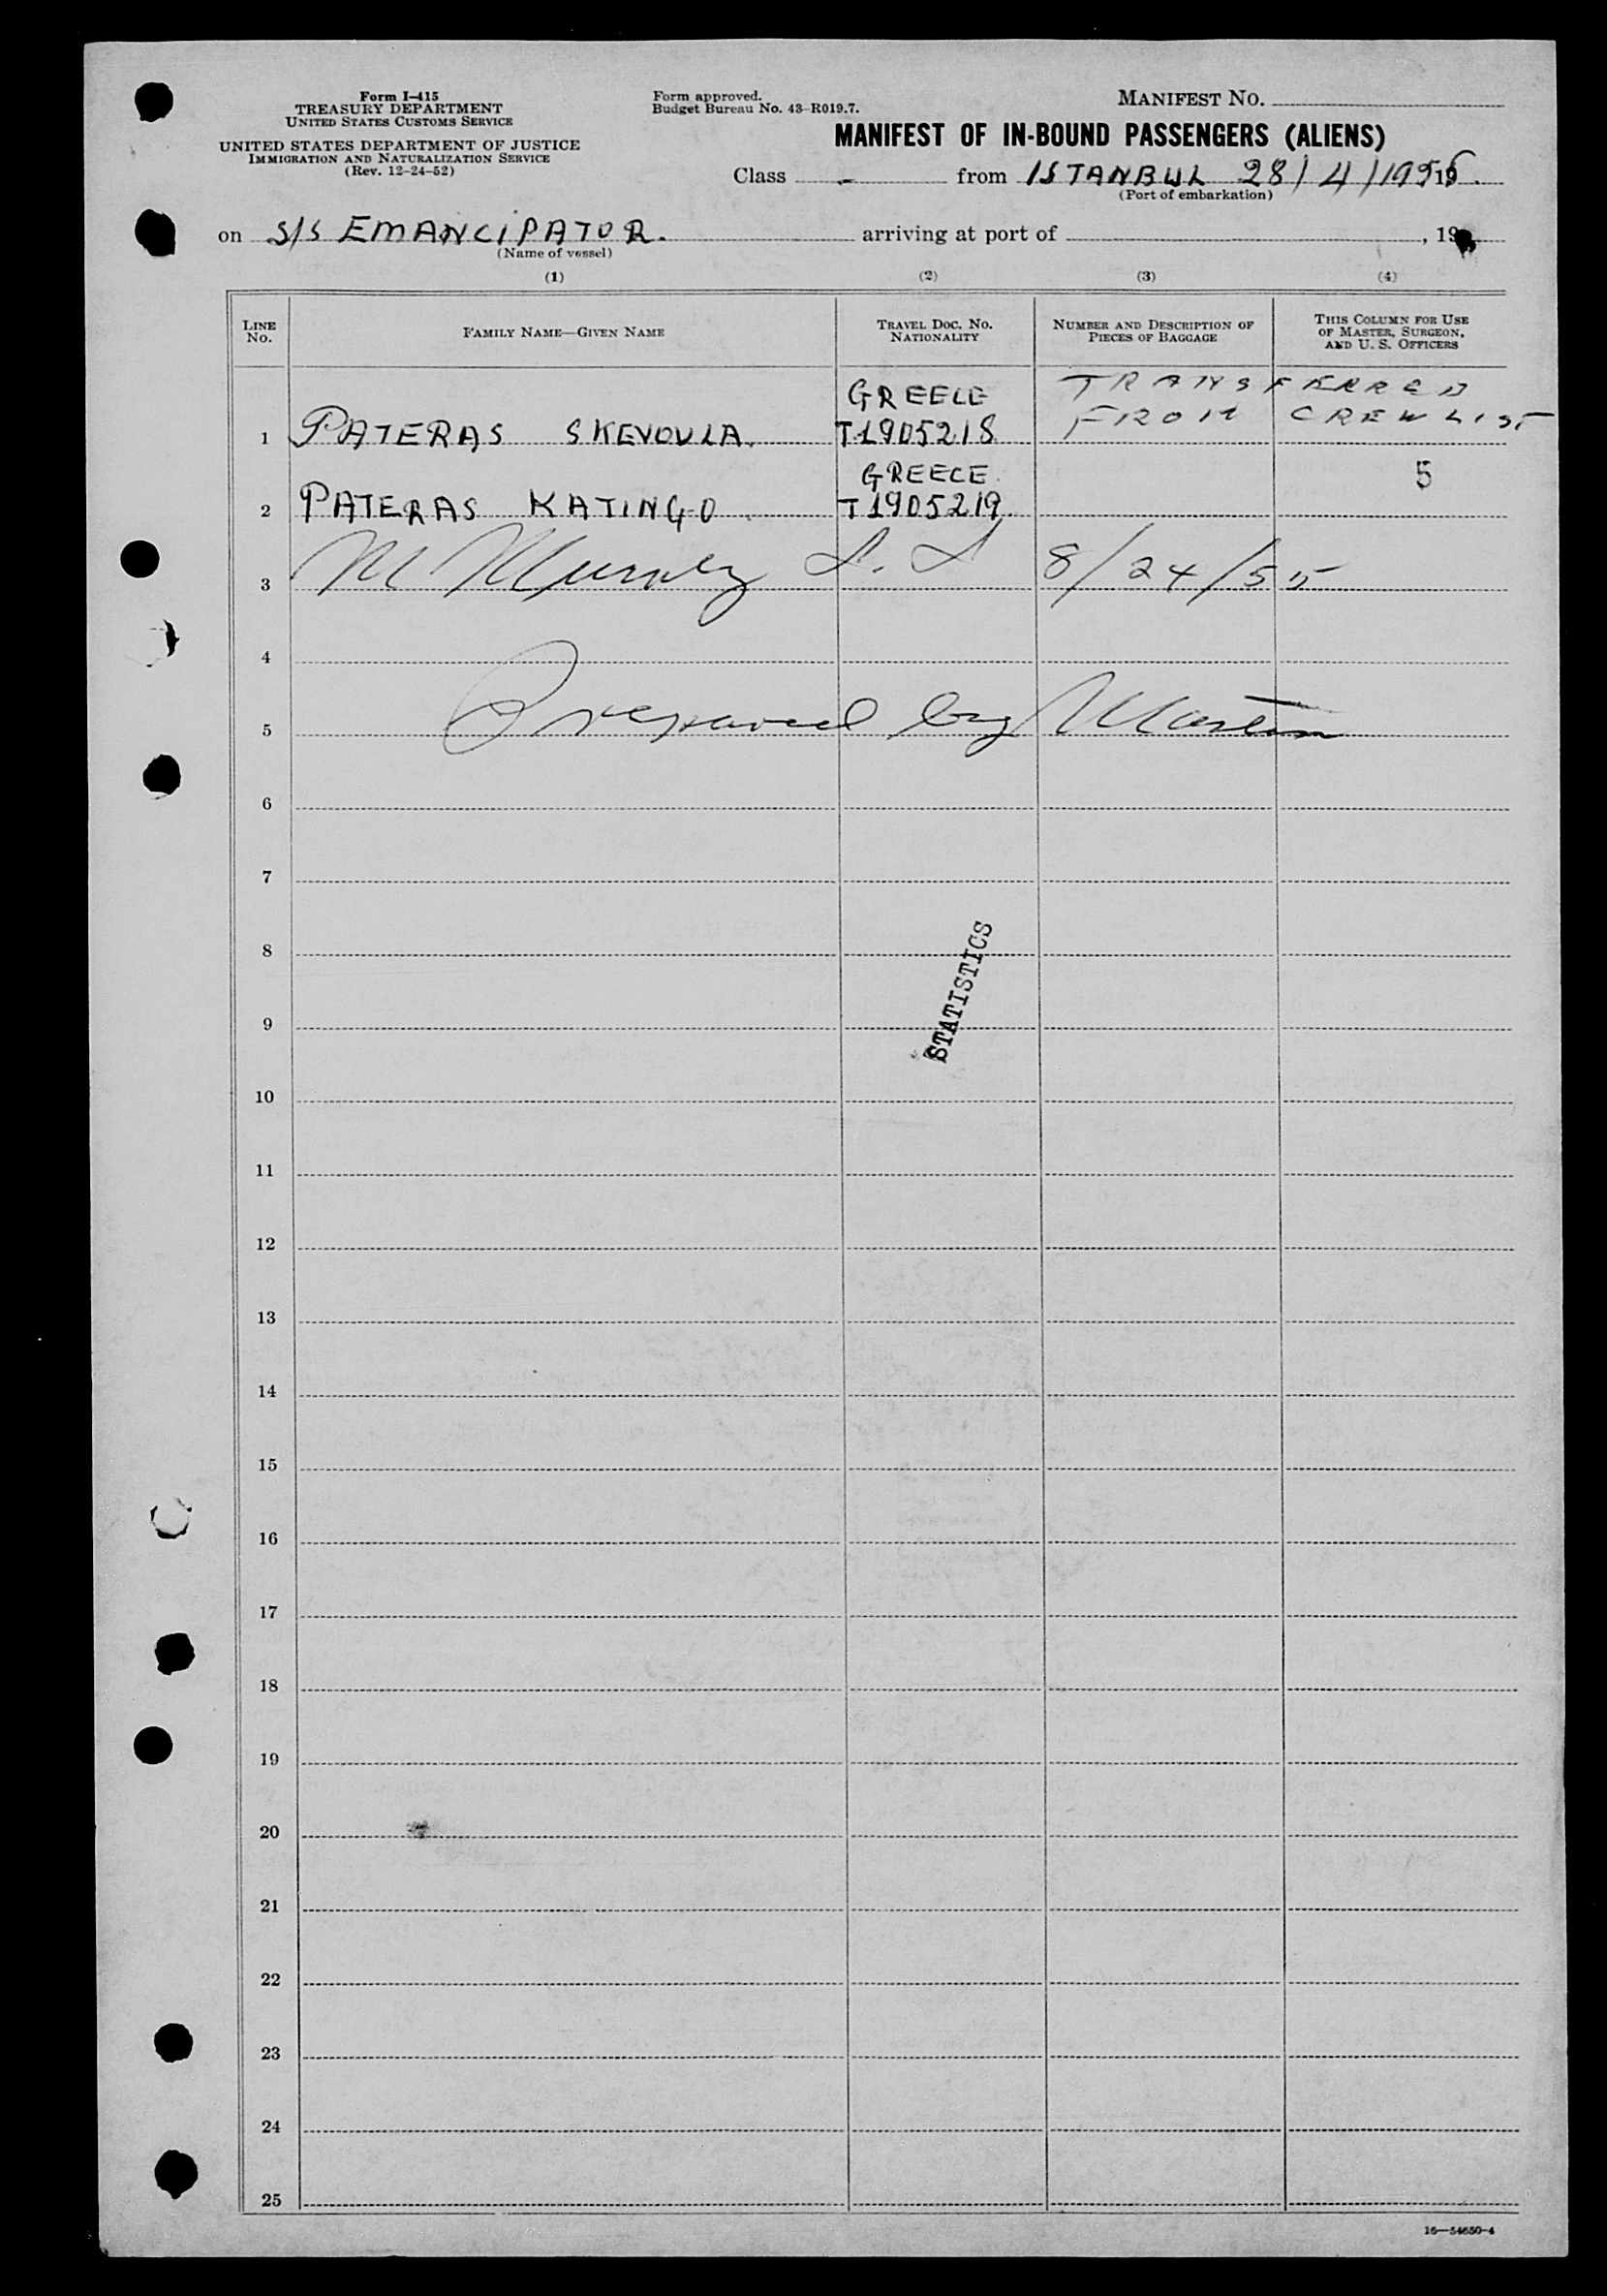 Form I-415
TREASURY DEPARTMENT
UNITED STATES CUSTOMS SERVICE
UNITED STATES DEPARTMENT OF JUSTICE
IMMIGRATION AND NATURALIZATION SERVICE
(Rev. 12-24-52)
Form approved.
Budget Bureau No. 43-R019.7.
MANIFEST NO.
MANIFEST OF IN-BOUND PASSENGERS (ALIENS)
Class - from ISTANBUL 28/4/1955.
(Port of embarkation)
on S/S EMANCIPATOR. arriving at port of , 19
(Name of vessel)
(1) (2) (3) (4)
LINE No. FAMILY NAME—GIVEN NAME TRAVEL DOC. NO. NATIONALITY NUMBER AND DESCRIPTION OF PIECES OF BAGGAGE THIS COLUMN FOR USE OF MASTER, SURGEON, AND U. S. OFFICERS
GREECE TRANSFERRED
1 PATERAS SKEVOULA. T1905218 FROM CREW LIST
GREECE. 5
2 PATERAS KATINGO T1905219.
3 8/24/55
4
5 Prepared by Master
6
7
8
STATISTICS
9
10
11
12
13
14
15
16
17
18
19
20
21
22
23
24
25
16—54650-4